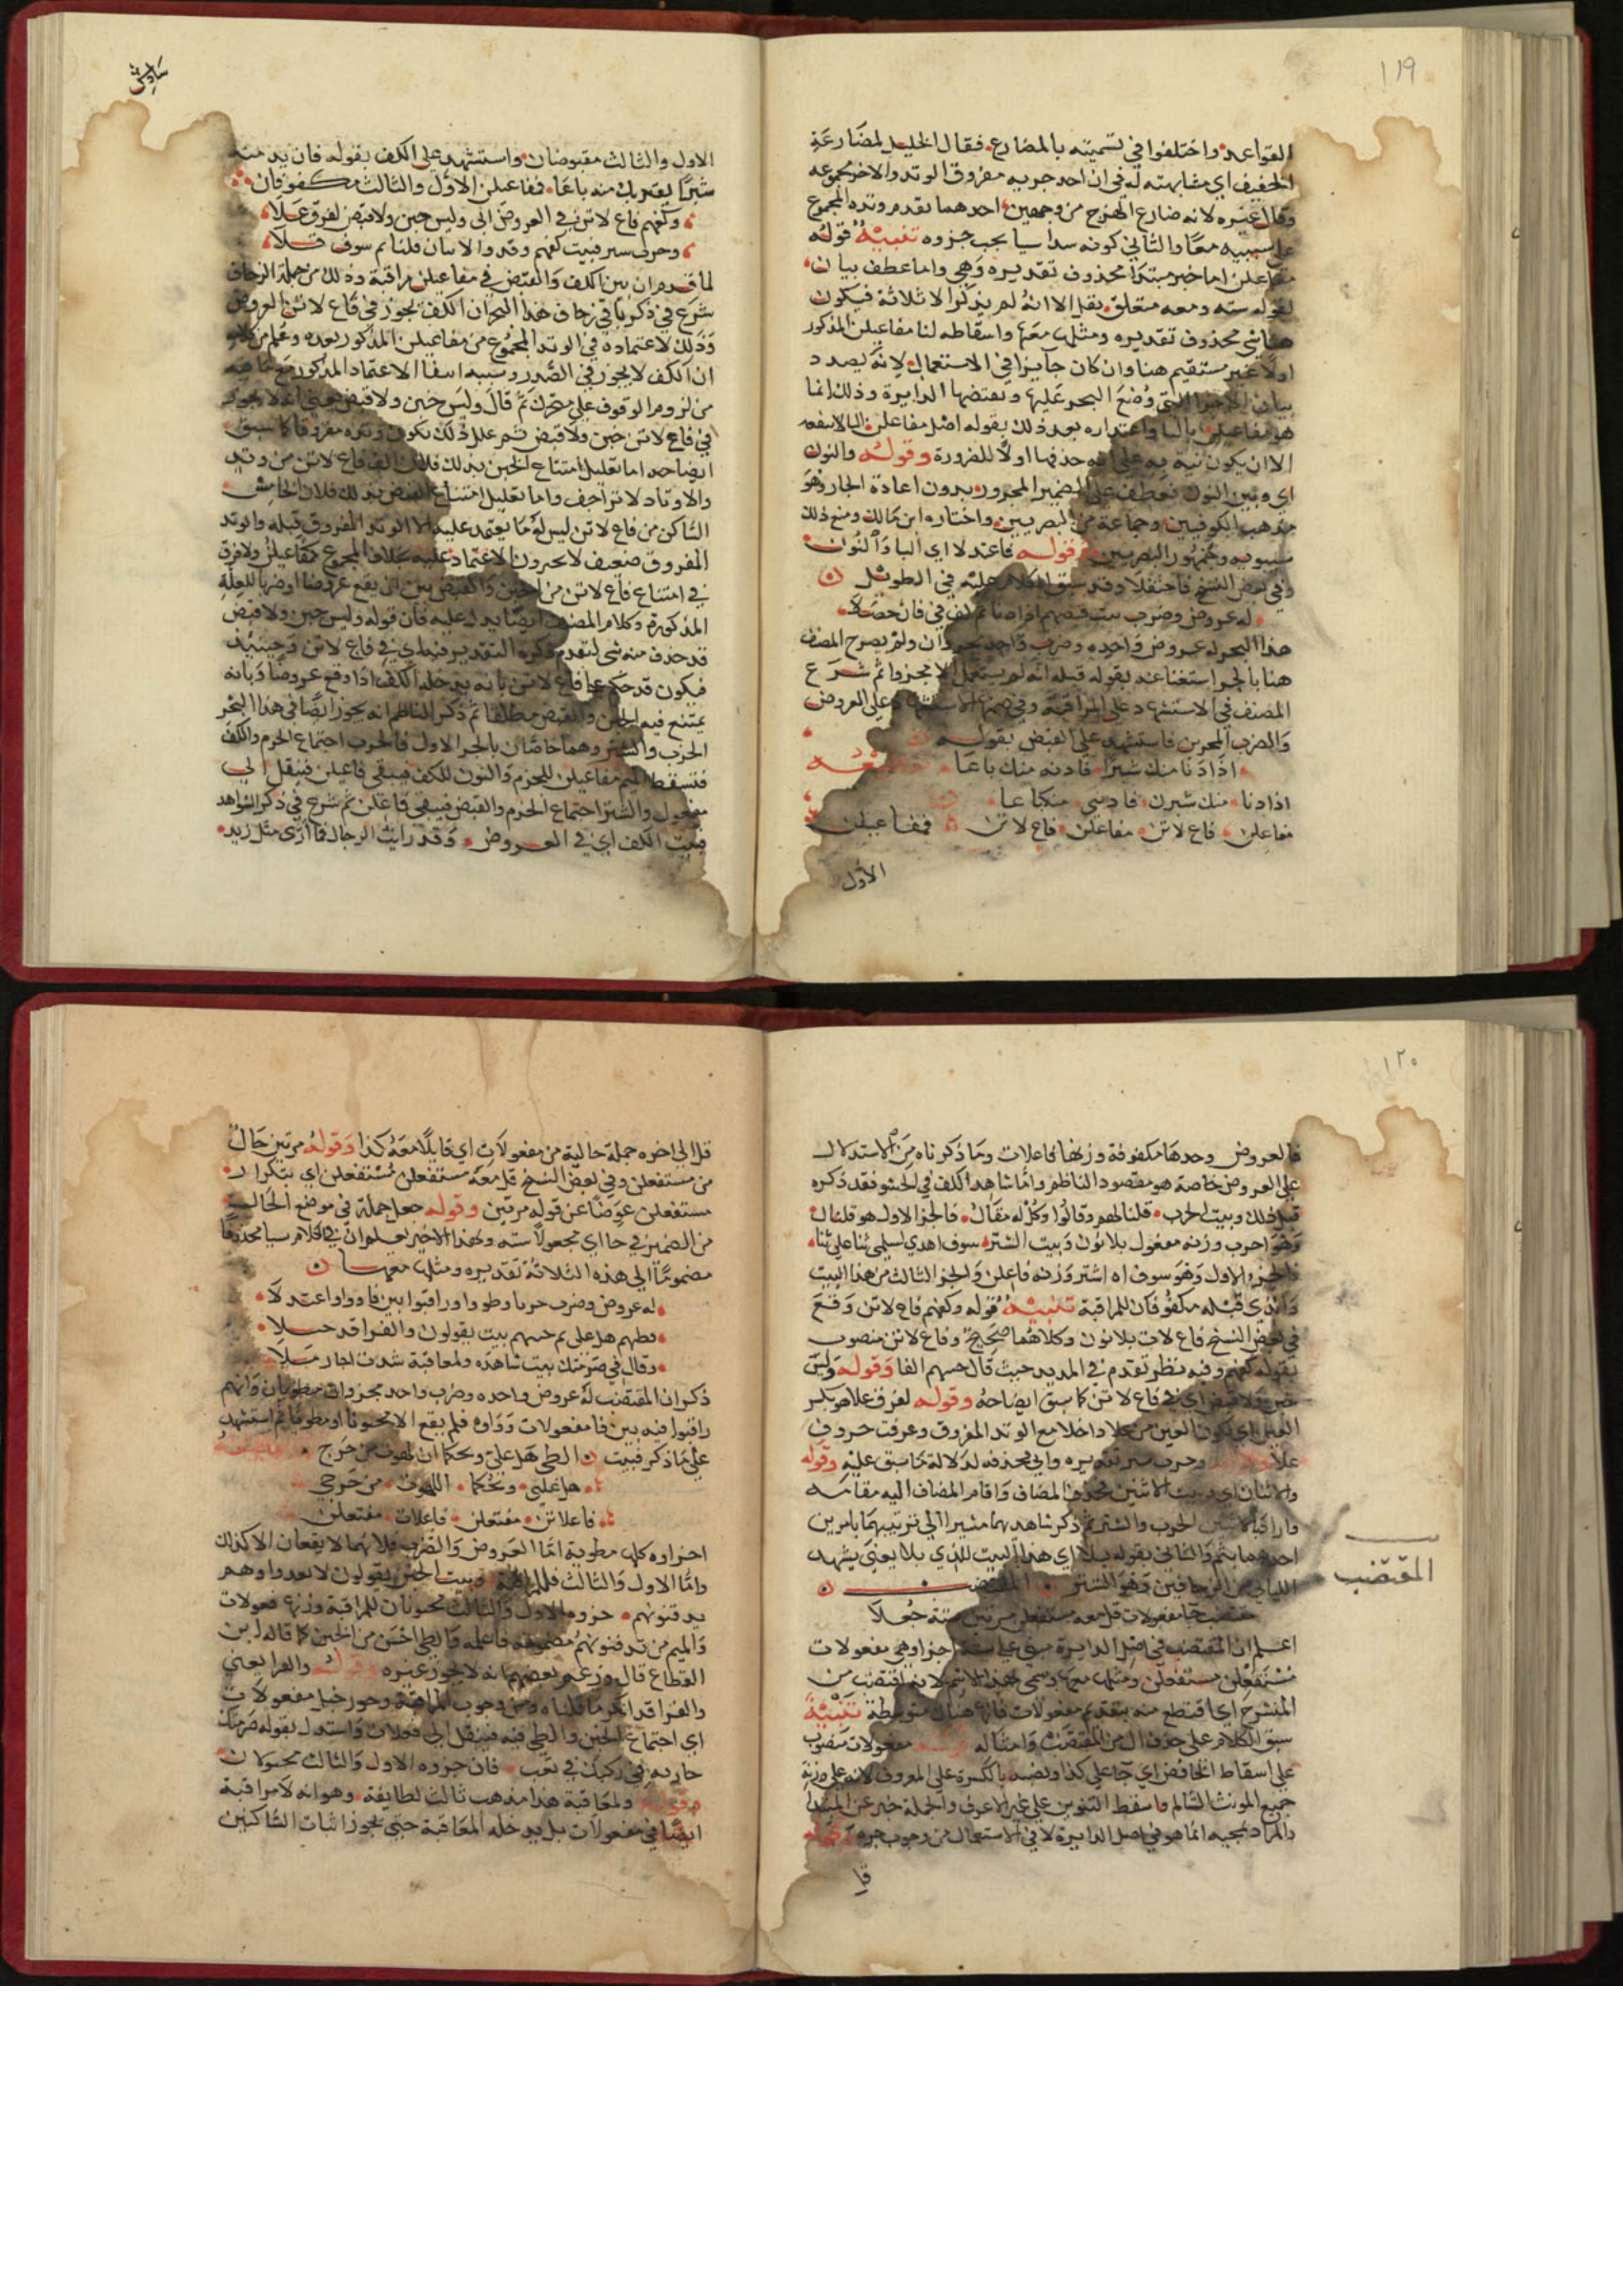 ١١٩
القواعد واختلفوا في تسميته بالمضارع فقال الخليل لمضارعة
الخفيف اي مشابهته له في ان احد جزويه مفروق الوتد والاخر مجموعه
وقال غيره لانه ضارع الهزج من وجهين احدهما تقدم وتده المجموع
على سببيه معا والثاني كونه سداسيا يجب جزوه تنبيه قوله
مفاعلن اما خبر مبتدا محذوف تقديره وهي واما عطف بيان
لقوله سته ومعه متعلق بقل الا انه لم يذكر الا ثلاثة فيكون
محذوف تقديره ومثلها معها واسقاطه لنا مفاعيلن المذكور
اولا غير مستقيم هنا وان كان جايزا في الاستعمال لانه يصدد
بيان الاجزا التي وضع البحر عليها وتقتضيها الدايرة وذلك انما
هو مفاعيلن باليا واعتذاره بعد ذلك بقوله اصل مفاعلن اليا لا ينفعه
الا ان يكون نبه به على انه حذفها اولا للضرورة وقوله والنون
اي وبين النون فعطف على الضمير المجرور بدون اعادة الجار وهو
مذهب الكوفيين وجماعة من البصريين واختاره ابن مالك ومنع ذلك
سيبويه وجمهور البصريين وقوله فاعتدلا اي اليا والنون
وفي بعض النسخ فاحتفلا وقد سبق الكلام عليه في الطويل
له عروض وضرب بيت قبضهم في فان حصلا
هذا البحر له عروض واحده وضرب واحد مجزوان ولم يصرح المصنف
هنا بالجزء استغناء بقوله قبله انه لم يستعمل الا مجزوا ثم شرع
المصنف في الاستشهاد على المراقبة وفي ضمنها الاستشهاد على العروض
والضرب المجزوين فاستشهد على القبض بقوله
اذا دنا منك شبرا فادنه منك باعا
اذادنا منك شبرن فادنهي منكباعا
مفاعلن فاع لاتن مفاعلن فاع لاتن فمفاعيلن
الاول
سادس
الاول والثالث مقبوضان واستشهد على الكف بقوله فان يدن منه
شبرا يقربك منه باعا فمفاعيلن الاول والثالث مكفوفان
وكفهم فاع لاتن في العروض اتى وليس خبن ولا قبض لفرق علا
وخرب شتر فبيت كفهم وقد والاثنان قلنا ثم سوف تلا
لما قدم ان بين الكف والقبض في مفاعيلن مراقبة وذلك من جملة الزحاف
شرع في ذكر باقي زحاف هذا البحر ان الكف يجوز في فاع لاتن العروض
وذلك لاعتماده في الوتد المجموع من مفاعيلن المذكور بعده وعلم من كلامه
ان الكف لا يجوز في الصدر وسببه انتفا الاعتماد المذكور مع ما فيه
من لزوم الوقوف على متحرك ثم قال وليس خبن ولا قبض يعني انه لا يجوز
في فاع لاتن خبن ولا قبض ثم علل ذلك بكون وتده مفروقا كما سبق
ايضاحه اما تعليل امتناع الخبن بذلك فلان الف فاع لاتن من وتد
والاوتاد لا تزاحف واما تعليل امتناع القبض بذلك فلان الخامس
الساكن من فاع لاتن ليس له ما يعتمد عليه الا الوتد المفروق قبله والوتد
المفروق ضعيف لا يجرون الاعتماد عليه بخلاف المجموع كمفاعيلن ولا فرق
في امتناع فاع لاتن من الخبن والقبض بين ان يقع عروضا او ضربا للعلة
المذكورة وكلام المصنف ايضا يدل عليه فان قوله وليس خبن ولا قبض
قد حذف منه شي لتقدم ذكره التقدير فيه اي في فاع لاتن وحينئذ
فيكون قد حكم على فاع لاتن بانه يدخله الكف اذا وقع عروضا وبانه
يمتنع فيه الخبن والقبض مطلقا ثم ذكر الناظم انه يجوز ايضا في هذا البحر
الخرب والشتر وهما خاصان بالجزء الاول فالخرب اجتماع الخرم والكف
فتسقط الميم مفاعيلن للخرم والنون للكف فيبقى فاعيلن فينقل الى
مفعول والشتر اجتماع الخرم والقبض فيبقى فاعلن ثم شرع في ذكر الشواهد
فبيت الكف اي في العروض وقد رايت الرجال فما ارى مثل زيد
١٢٠
فالعروض وحدها مكفوفة وزنها فاعلات وما ذكرناه من الاستدلال
على العروض خاصة هو مقصود الناظم واما شاهد الكف في الحشو فقد ذكره
قبل ذلك وبيت الخرب قلنا لهم وقالوا وكل له مقال فالجز الاول هو قلنا ل
وهو اخرب وزنه مفعول بلا نون وبيت الشتر سوف اهدي لسلمى ثنا على ثنا
فالجزء الاول وهو سوف اه اشتر وزنه فاعلن والجز الثالث من هذا البيت
والذي قبله مكفوفان للمراقبة تنبيه قوله وكفهم فاع لاتن وقع
في بعض النسخ فاع لات بلا نون وكلاهما صحيح وفاع لاتن منصوب
بقوله كفهم وفيه نظر تقدم في المديد حيث قال خبنهم الفا وقوله وليس
خبن ولا قبض اي في فاع لاتن كما سبق ايضاحه وقوله لفرق علا هو بكسر
العين اي لكون العين من علا داخلا مع الوتد المفروق وعرفت حروف
علا وقوله وخرب شتر تقديره واي فحذفه لدلالة ما سبق عليه وقوله
والاثنان اي وبيت الاثنين فحذف المضاف واقام المضاف اليه مقامه
واراد بالاثنين الخرب والشتر ثم ذكر شاهدهما مشيرا الى ترتيبهما بامرين
احدهما بثم والثاني بقوله تلا اي هذا البيت للذي تلا يعني يشهد
للثاني من الزحافين وهو الشتر المقتضب
المقتضب
مقتضب حا مفعولات قل معه مستفعلن مرتين ستة جعلا
اعلم ان المقتضب في اصل الدايرة مبني على ستة اجزا وهي مفعولات
مستفعلن مستفعلن ومثلها معها وسمي بهذا الاسم لانه اقتضب من
المنسرح اي اقتطع منه بتقديم مفعولات فانها هناك متوسطة تنبيه
سبق الكلام على حذف ال من المقتضب وامثاله وقوله مفعولات منصوب
على اسقاط الخافض اي جا على كذا ونصبه بالكسرة على المعروف لانه على زنة
جمع المونث السالم واسقط التنوين على غير الاعرف والجملة خبر عن المبتدا
والمراد بمجيه انما هو في اصل الدايرة لا في الاستعمال من وجوب جزه وقوله
قل
قل الى اخره جملة حالية من مفعولات اي قايلا معه كذا وقوله مرتين حال
من مستفعلن وفي بعض النسخ قل معه مستفعلن مستفعلن اي بتكرار
مستفعلن عوضا عن قوله مرتين وقوله جعل جملة في موضع الحال
من الضمير في حا اي مجعولا ستة وبهذا الاخير يعلم ان في الكلام شيا محذوفا
مضموما الى هذه الثلاثة تقديره ومثلها معها
له عروض وضرب
وطيهم هل على بيت يقولون والفرا قد
وقال في صرمتك بيت شاهده ولمعاقبة شدت
ذكر ان المقتضب له عروض واحده وضرب واحد مجزوان مطويان وانهم
راقبوا فيه بين فا مفعولات وواوه فلم يقع الا مخبونا او مطويا ثم استشهد
على ما ذكر فبيت الطي هل علي ويحكما ان لهوت من حرج
هل عليي ويحكما اللهوت من حرجي
فاعلاتن مفتعلن فاعلات مفتعلن
اجزاوه كلها مطوية اما العروض والضرب فلانهما لا يقعان الا كذلك
واما الاول والثالث فللمراقبة وبيت الخبن يقولون لا بعدوا وهم
يدفنونهم جزوه الاول والثالث مخبونان للمراقبة وزنها فعولات
والميم من تدفنونهم مضمومة فاعلمه والطي احسن من الخبن كما قاله ابن
القطاع قال وزعم بعضهم انه لا يجوز غيره وقوله والفرا يعني
والفرا قد انكر ما قلناه من وجوب المراقبة وجوز خبل مفعولات
اي اجتماع الخبن والطي فيه فينقل الى فعلات واستدل بقوله صرمتك
جارية تركتك في تعب فان جزوه الاول والثالث مخبولان
وقوله ولمعاقبة هذا مذهب ثالث لطايفة وهو انه لا مراقبة
ايضا في مفعولات بل يدخله المعاقبة حتى يجوز اثبات الساكنين